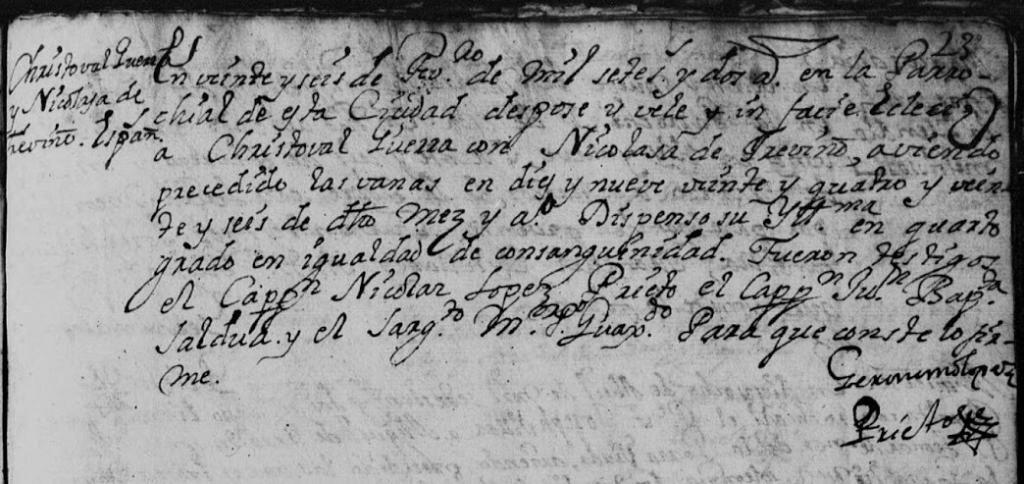 23
Christoval Guerra
y Nicolasa de
Trevino. Españ.
En veinte y seis de Fro. de mil setes. y dos a. en la Parro-
chial de esta Ciudad despose y vele y in facie Eclecie
a Christoval Guerra con Nicolasa de Treviño, aviendo
precedido las vanas en diez y nueve veinte y quatro y vein-
te y seis de dho Mez y a Dispenso su Yllma en quarto
grado en igualdad de consanguinidad. Fueron testigos
el Cappn Nicolas Lopez Prieto el Cappn Jun Bapta
Saldua. y el Sargto Mr Para que conste lo fir-
me.
Geronimo Lopez
Prieto